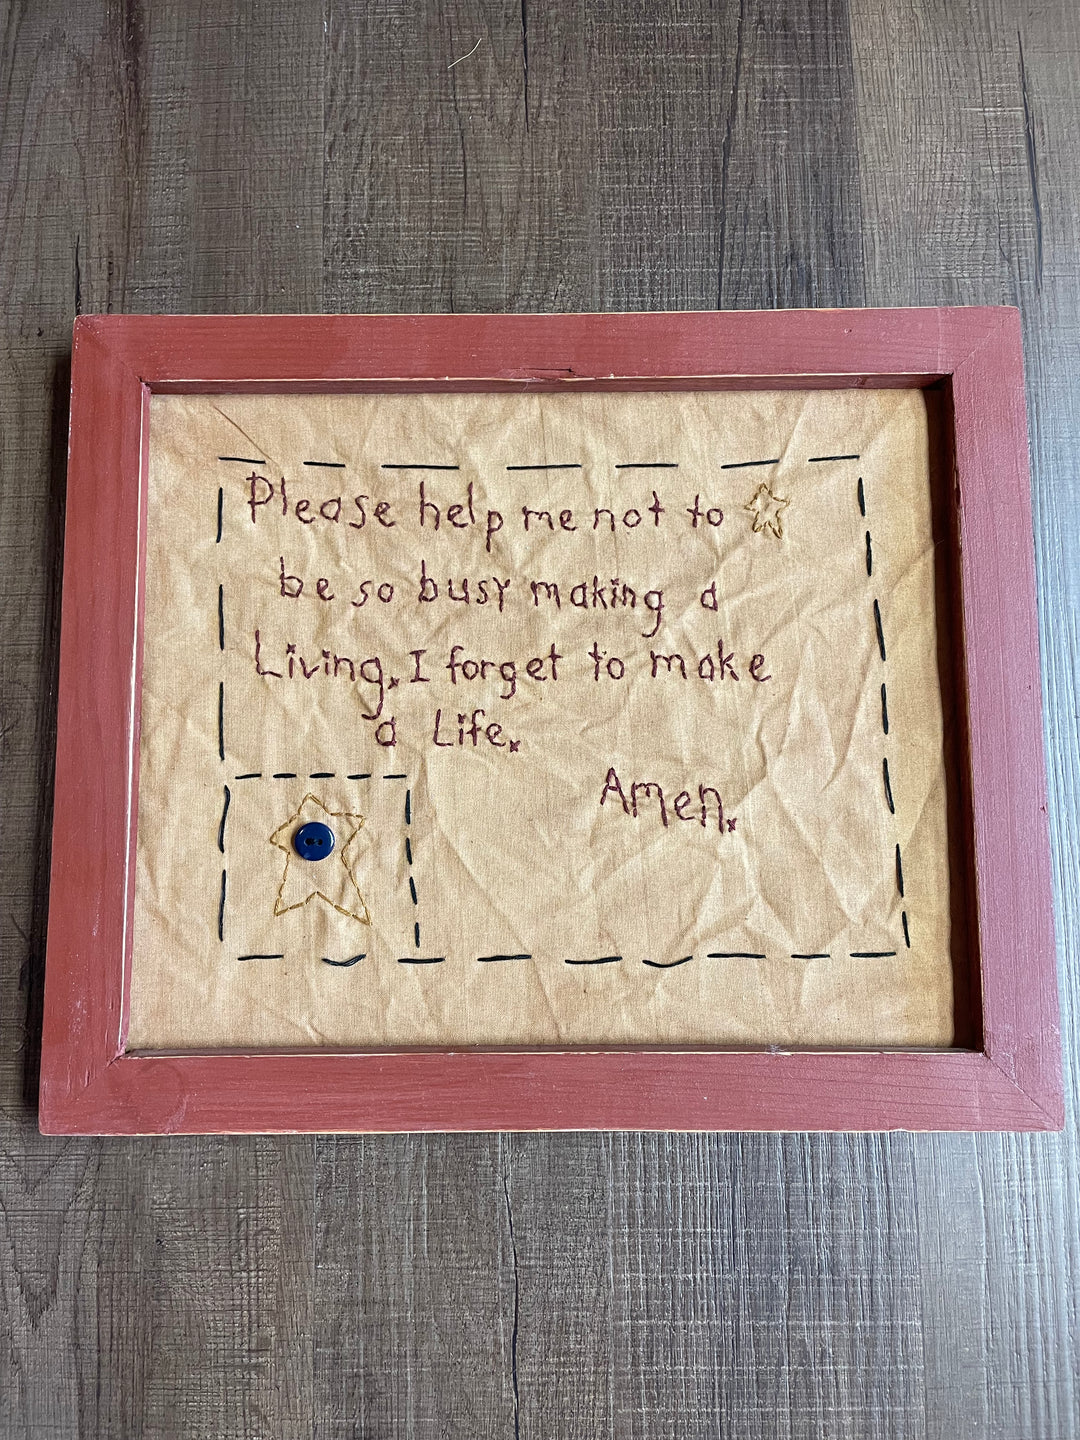 Please help me not to
be so busy making a
Living. I forget to make
a Life.
Amen.